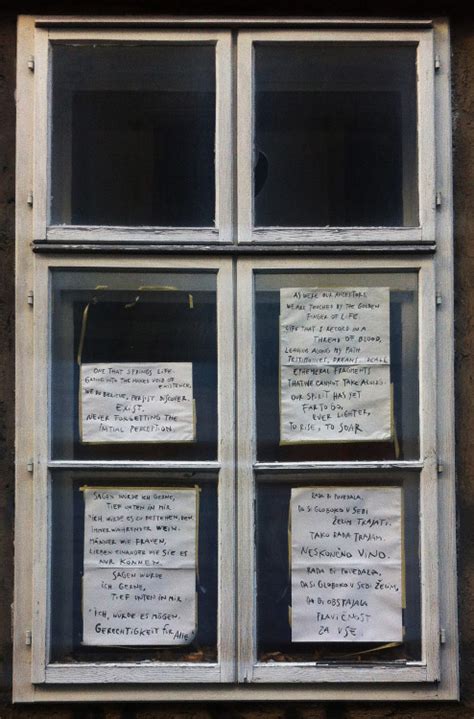 ONE THAT SPRINGS LIFE
GAZING INTO THE NAKED VOID OF
EXISTENCE,
WE DO BELIEVE, PERSIST, DISCOVER.
EXIST.
NEVER FORGETTING THE
INITIAL PERCEPTION.
AS WERE OUR ANCESTORS,
WE ARE TOUCHED BY THE GOLDEN
FINGER OF LIFE.
LIFE THAT I RECORD IN A
THREAD OF BLOOD,
LEAVING ALONG MY PATH
TESTIMONIES, DREAMS
EPHEMERAL FRAGMENTS
THAT WE CANNOT TAKE ALONG.
OUR SPIRIT HAS YET
FAR TO GO,
EVER LIGHTER,
TO RISE, TO SOAR
SAGEN WÜRDE ICH GERNE,
TIEF UNTEN IN MIR
"ICH WÜRDE ES ZU BESTEHEN, DEN
IMMERWÄHRENDER WEIN.
MÄNNER WIE FRAUEN,
LIEBEN EINANDER WIE SIE ES
NUR KÖNNEN.
SAGEN WÜRDE
ICH GERNE,
TIEF UNTEN IN MIR
"ICH, WÜRDE ES MÖGEN.
GERECHTIGKEIT FÜR Alle"
RADA BI POVEDALA,
DA SI GLOBOKO V SEBI
ŽELIM TRAJATI.
TAKO RADA TRAJAM.
NESKONČNO VINO.
RADA BI POVEDALA,
DA SI GLOBOKO V SEBI ŽELIM,
DA BI OBSTAJALA
PRAVIČNOST
ZA VSE.